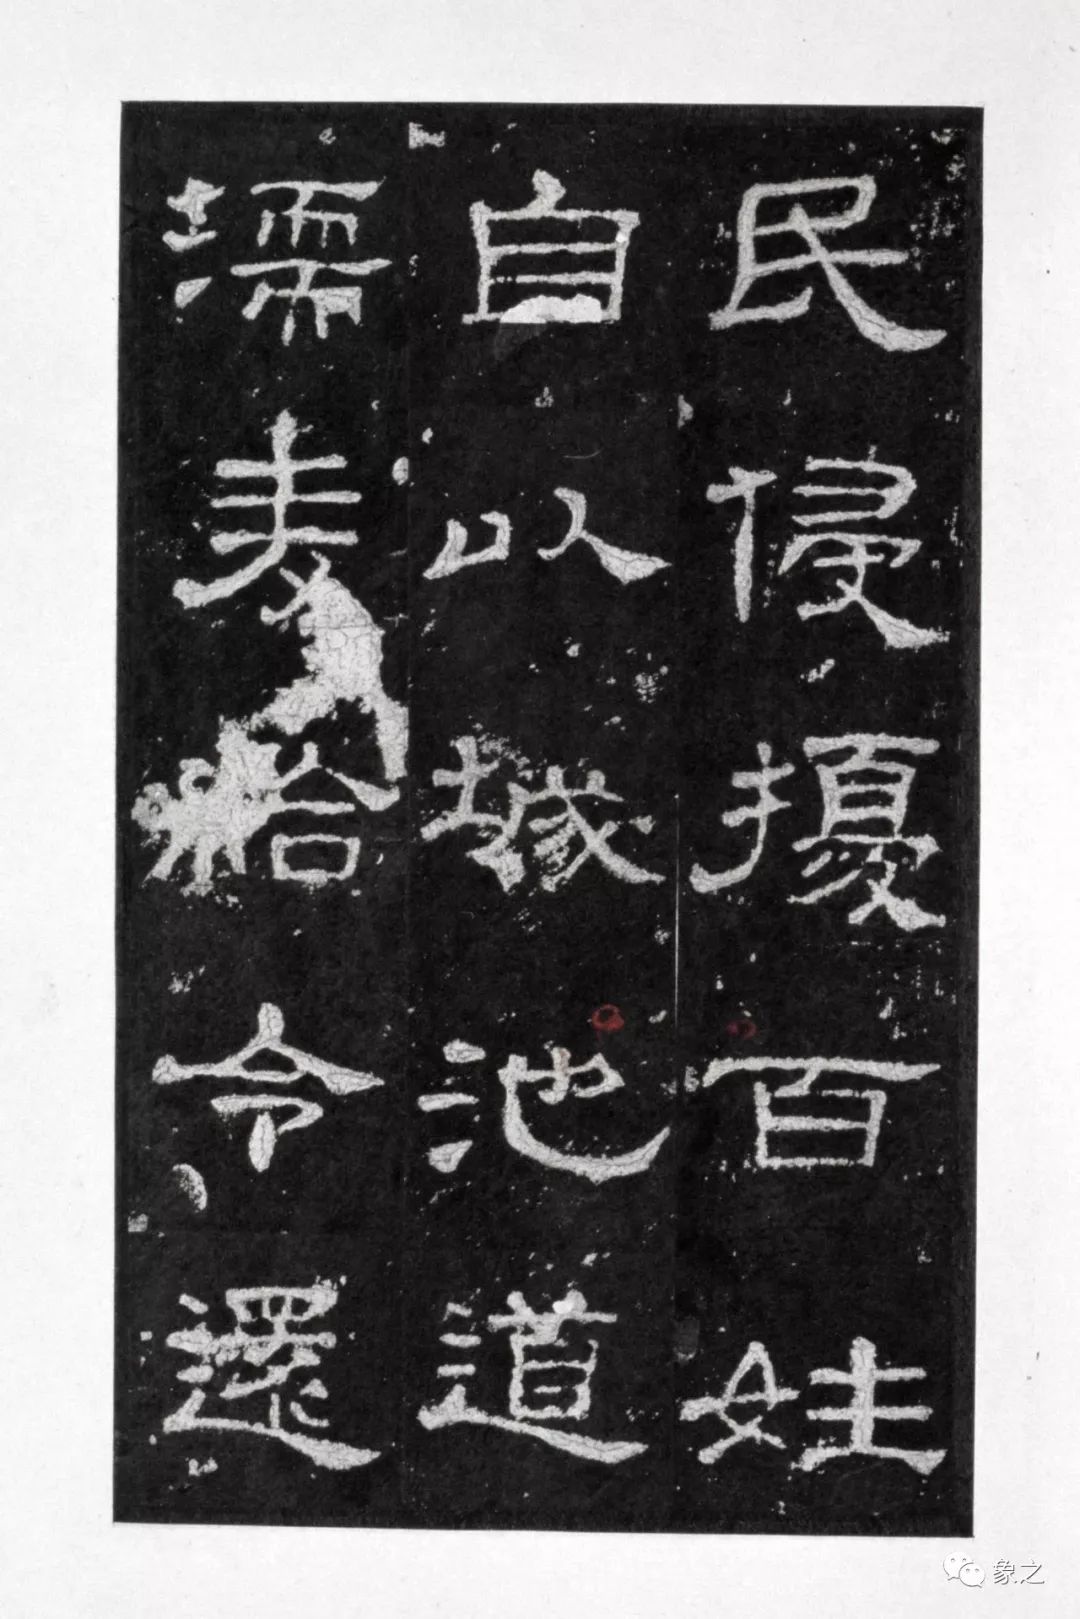 民侵擾百姓
自以城池道
濡麥給令還
象之